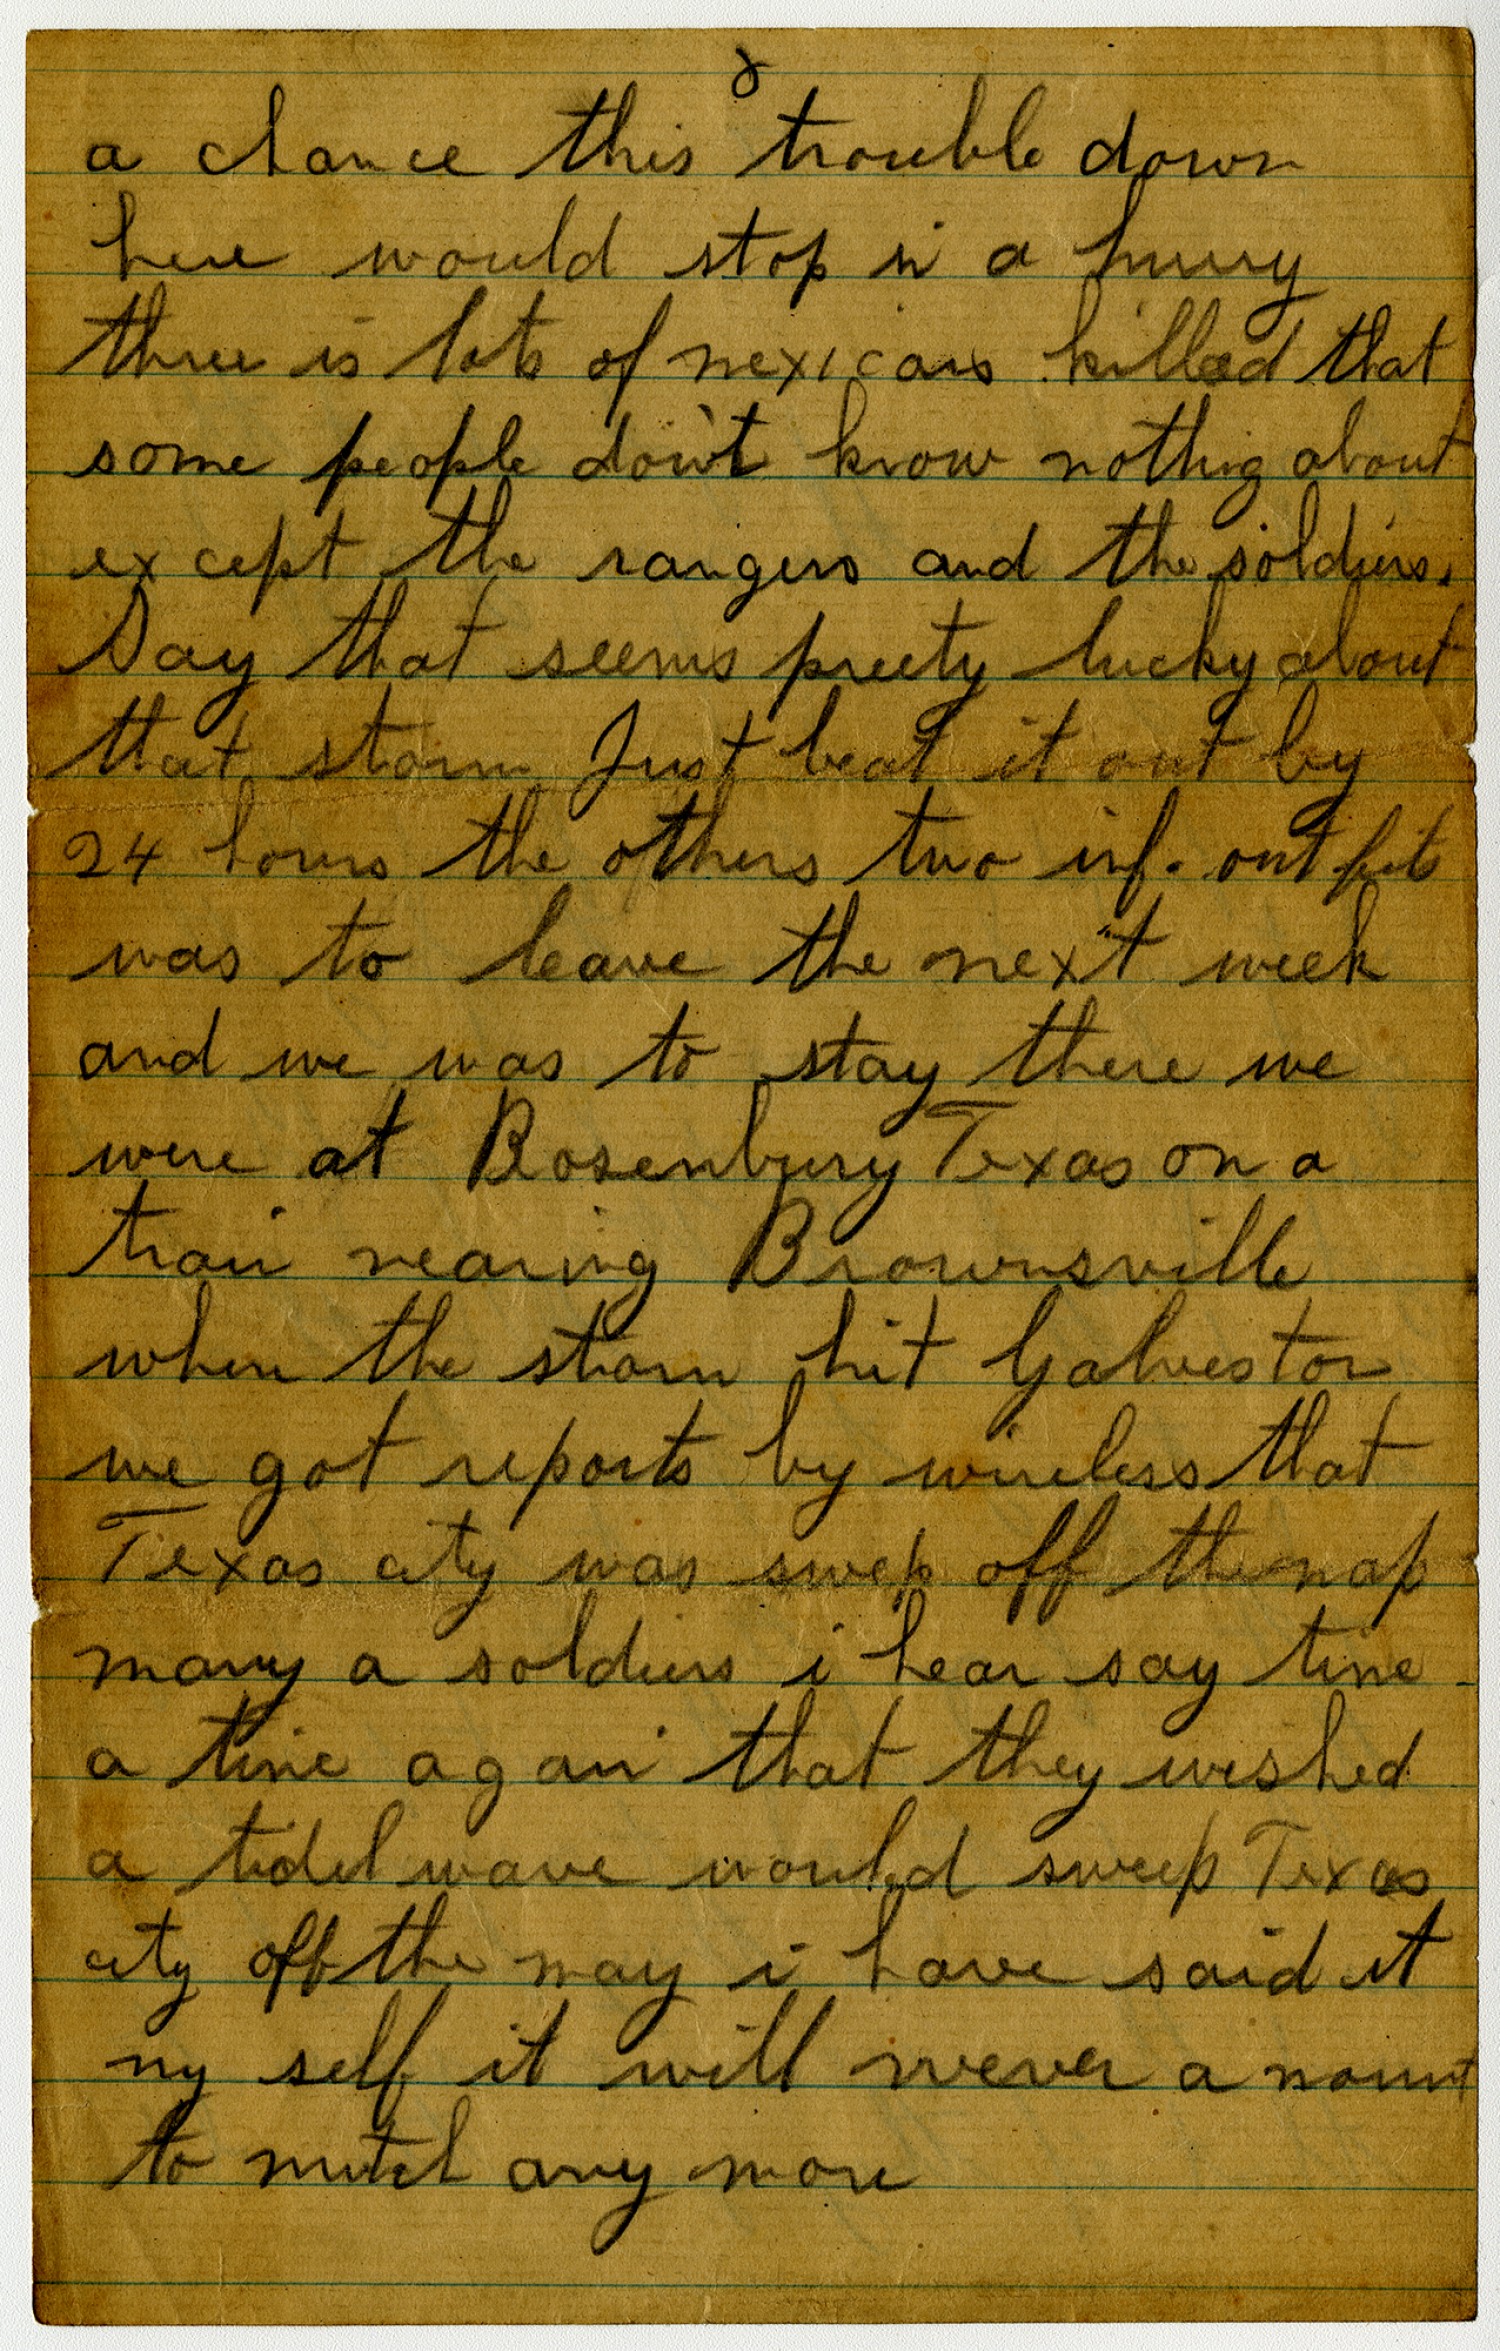 a chance this trouble down
here would stop in a hurry
three is lots of mexicans killed that
some people don't know nothing about
except the rangers and the soldiers.
Say that seems preety lucky about
that storm Just beat it out by
24 hours the others two inf. outfits
was to leave the next week
and we was to stay there we
were at Rosenbury Texas on a
train nearing Brownsville
when the storm hit Galveston
we got reports by wireless that
Texas city was swep off the map
many a soldiers i hear say time
a time again that they wished
a tidel wave would sweep Texas
city off the may i have said it
my self it will never a mount
to mutch any more